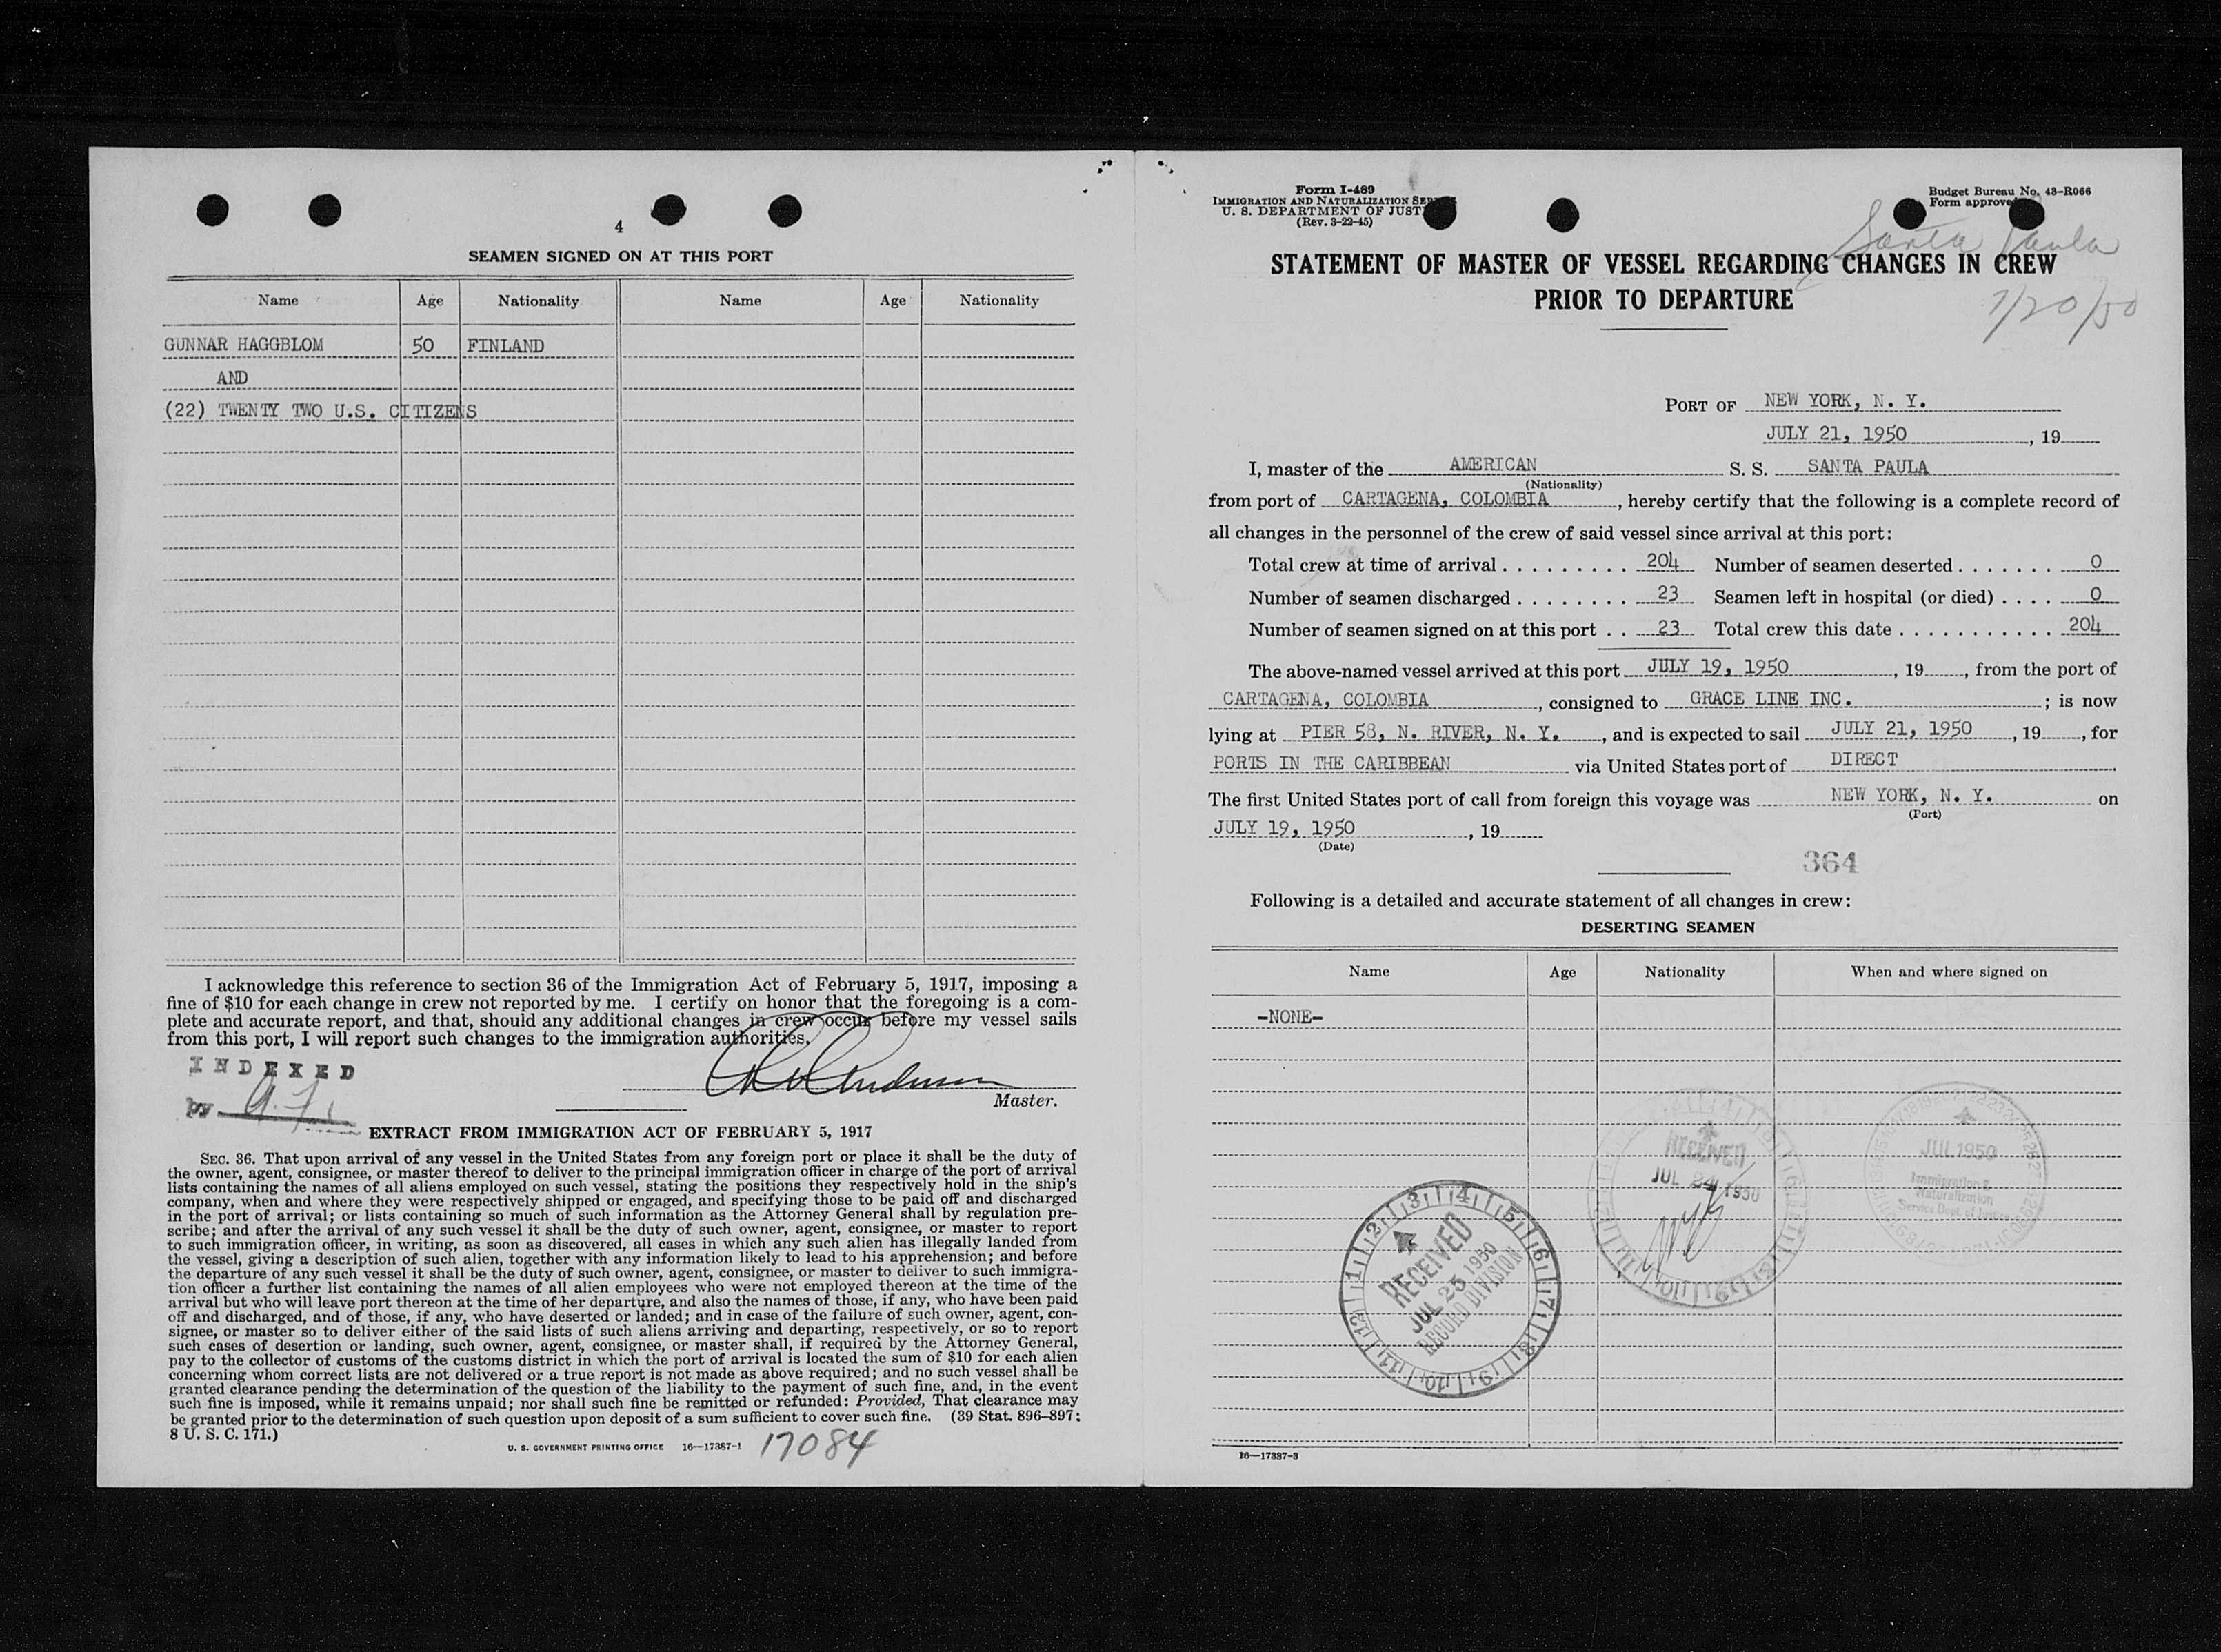 4
SEAMEN SIGNED ON AT THIS PORT
Name Age Nationality Name Age Nationality
GUNNAR HAGGBLOM 50 FINLAND
AND
(22) TWENTY TWO U.S. CITIZENS
I acknowledge this reference to section 36 of the Immigration Act of February 5, 1917, imposing a
fine of $10 for each change in crew not reported by me. I certify on honor that the foregoing is a com-
plete and accurate report, and that, should any additional changes in crew occur before my vessel sails
from this port, I will report such changes to the immigration authorities.
INDEXED
by
Master.
EXTRACT FROM IMMIGRATION ACT OF FEBRUARY 5, 1917
SEC. 36. That upon arrival of any vessel in the United States from any foreign port or place it shall be the duty of
the owner, agent, consignee, or master thereof to deliver to the principal immigration officer in charge of the port of arrival
lists containing the names of all aliens employed on such vessel, stating the positions they respectively hold in the ship's
company, when and where they were respectively shipped or engaged, and specifying those to be paid off and discharged
in the port of arrival; or lists containing so much of such information as the Attorney General shall by regulation pre-
scribe; and after the arrival of any such vessel it shall be the duty of such owner, agent, consignee, or master to report
to such immigration officer, in writing, as soon as discovered, all cases in which any such alien has illegally landed from
the vessel, giving a description of such alien, together with any information likely to lead to his apprehension; and before
the departure of any such vessel it shall be the duty of such owner, agent, consignee, or master to deliver to such immigra-
tion officer a further list containing the names of all alien employees who were not employed thereon at the time of the
arrival but who will leave port thereon at the time of her departure, and also the names of those, if any, who have been paid
off and discharged, and of those, if any, who have deserted or landed; and in case of the failure of such owner, agent, con-
signee, or master so to deliver either of the said lists of such aliens arriving and departing, respectively, or so to report
such cases of desertion or landing, such owner, agent, consignee, or master shall, if required by the Attorney General,
pay to the collector of customs of the customs district in which the port of arrival is located the sum of $10 for each alien
concerning whom correct lists are not delivered or a true report is not made as above required; and no such vessel shall be
granted clearance pending the determination of the question of the liability to the payment of such fine, and, in the event
such fine is imposed, while it remains unpaid; nor shall such fine be remitted or refunded: Provided, That clearance may
be granted prior to the determination of such question upon deposit of a sum sufficient to cover such fine. (39 Stat. 896–897;
8 U. S. C. 171.)
U. S. GOVERNMENT PRINTING OFFICE 16—17387-1 17084
Form I-489
IMMIGRATION AND NATURALIZATION
U. S. DEPARTMENT OF
(Rev. 3-22-45)
Budget Bureau No. 43-R066
Form approved
Santa Paula
7/20/50
STATEMENT OF MASTER OF VESSEL REGARDING CHANGES IN CREW
PRIOR TO DEPARTURE
PORT OF NEW YORK, N. Y.
JULY 21, 1950, 19
I, master of the AMERICAN S. S. SANTA PAULA
(Nationality)
from port of CARTAGENA, COLOMBIA, hereby certify that the following is a complete record of
all changes in the personnel of the crew of said vessel since arrival at this port:
Total crew at time of arrival . . . . . . . . . 204 Number of seamen deserted . . . . . . . 0
Number of seamen discharged . . . . . . . . 23 Seamen left in hospital (or died) . . . . 0
Number of seamen signed on at this port . . 23 Total crew this date . . . . . . . . . . . 204
The above-named vessel arrived at this port JULY 19, 1950, 19, from the port of
CARTAGENA, COLOMBIA, consigned to GRACE LINE INC. ; is now
lying at PIER 58, N. RIVER, N. Y., and is expected to sail JULY 21, 1950, 19, for
PORTS IN THE CARIBBEAN via United States port of DIRECT
The first United States port of call from foreign this voyage was NEW YORK, N. Y. on
(Port)
JULY 19, 1950, 19
(Date)
364
Following is a detailed and accurate statement of all changes in crew:
DESERTING SEAMEN
Name Age Nationality When and where signed on
-NONE-
RECEIVED
JUL 24 1950
JUL 1950
Immigration &
Naturalization
Service Dept. of Justice
RECEIVED
JUL 25 1950
RECORD DIVISION
16—17387-3